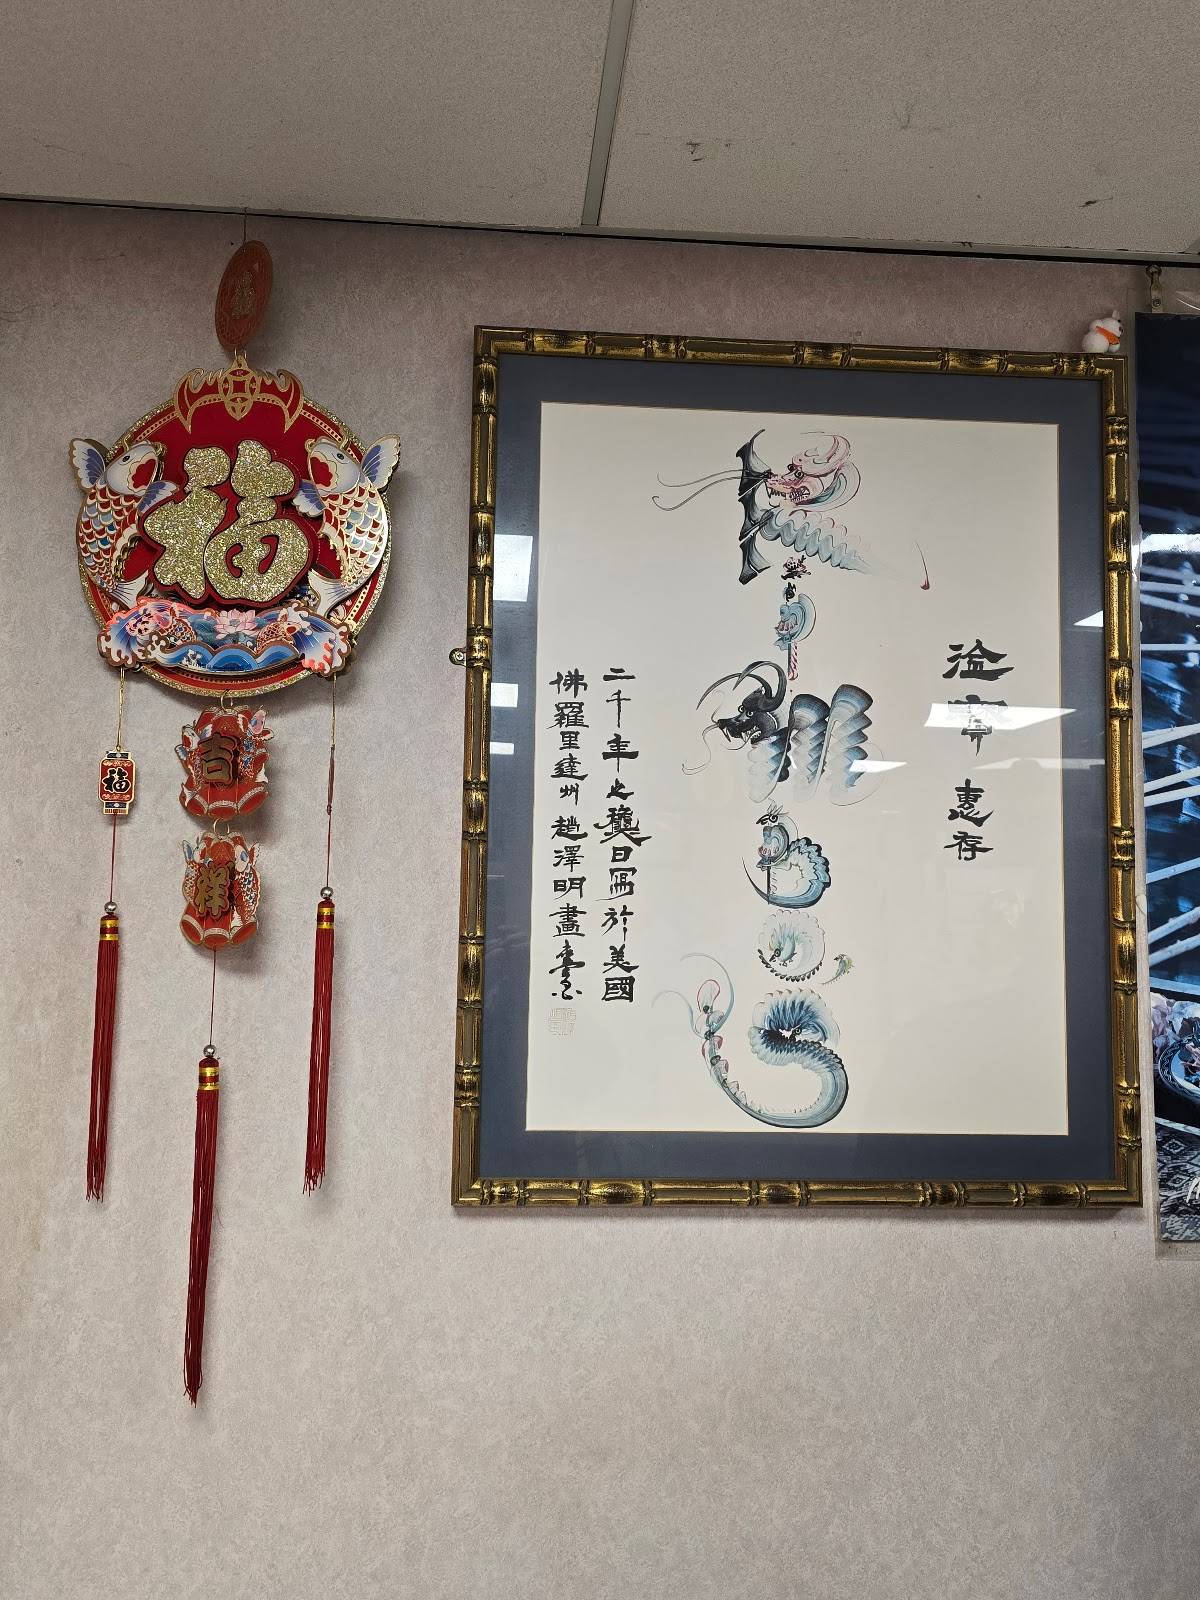 福
福
吉
祥
惠存
二千年之龔日寫於美國
佛羅里達州趙澤明畫